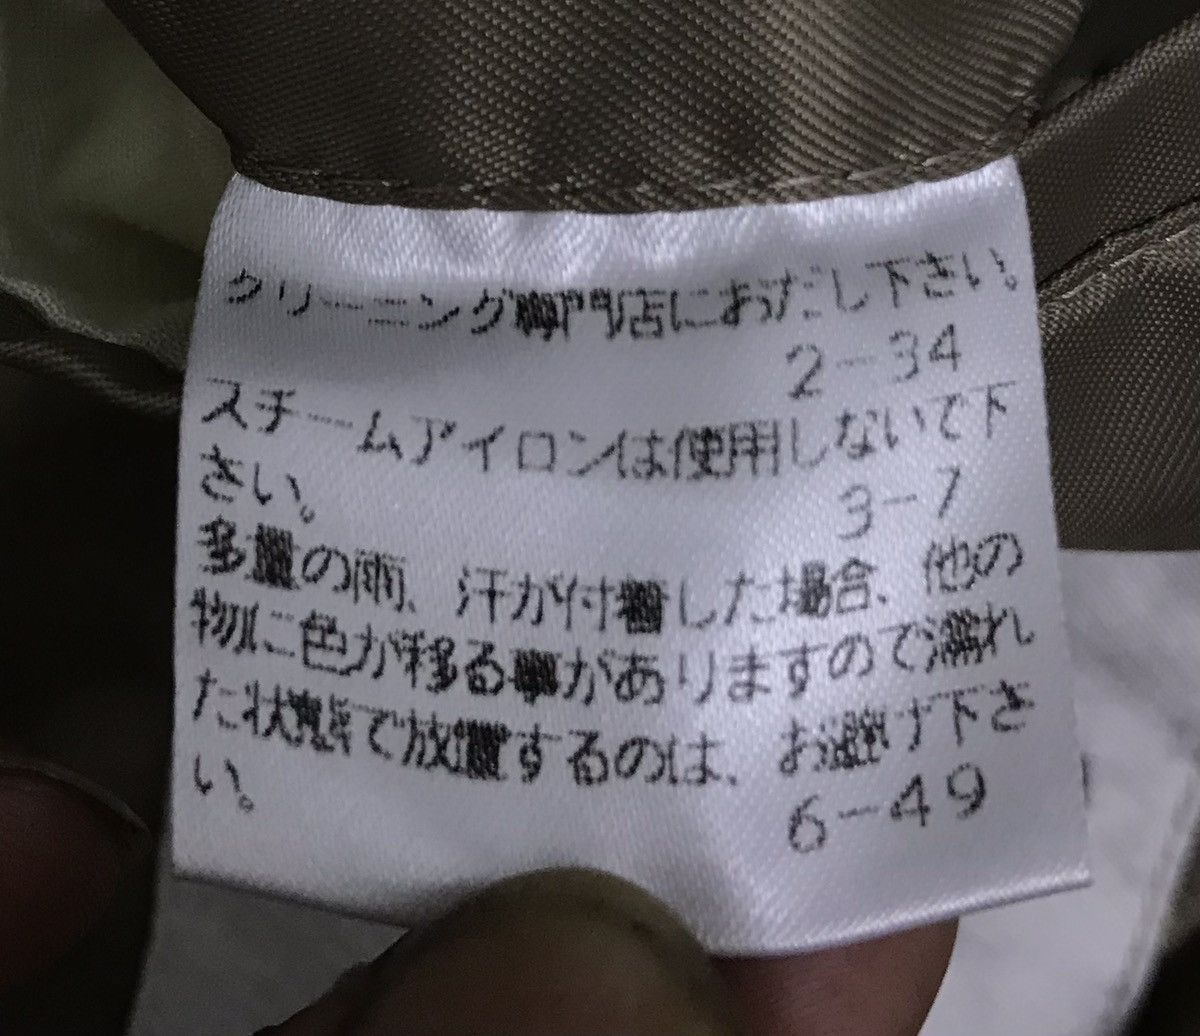 クリーニング専門店におだし下さい。
2-34
スチームアイロンは使用しないで下
さい。
3-7
多量の雨、汗が付着した場合、他の
物に色が移る事がありますので濡れ
た状態で放置するのは、お避け下さ
い。
6-49